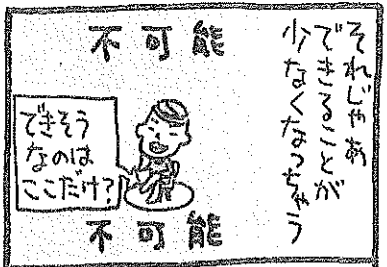 それじゃあ
できることが
少なくなっちゃう
不可能
できそう
なのは
ここだけ？
不可能